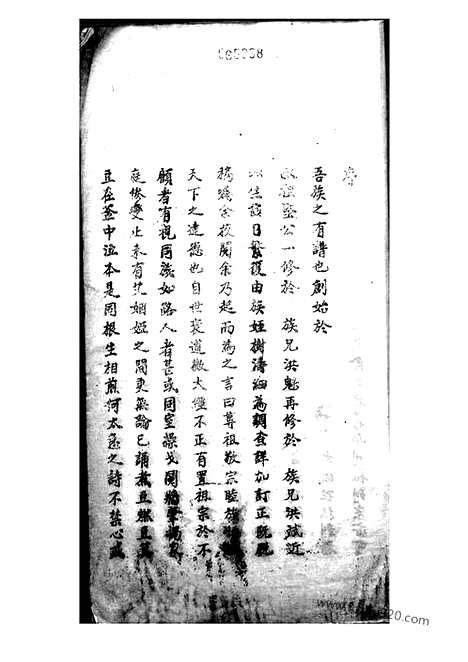 085008
吾族之有譜也創始於
公一修於 族兄洪魁再修於 族兄洪斌近
生齒日繁復由族姪樹濤細為調查詳加訂正既脫
稿囑余校閱余乃起而為之言曰尊祖敬宗睦族
天下之達德也自世衰道微大經不正有置祖宗於不
顧者有視同族如路人者甚或同室操戈鬩牆
庭慘變止未有艾姻婭之間更無論已誦煮豆燃豆萁
豆在釜中泣本是同根生相煎何太急之詩不禁心